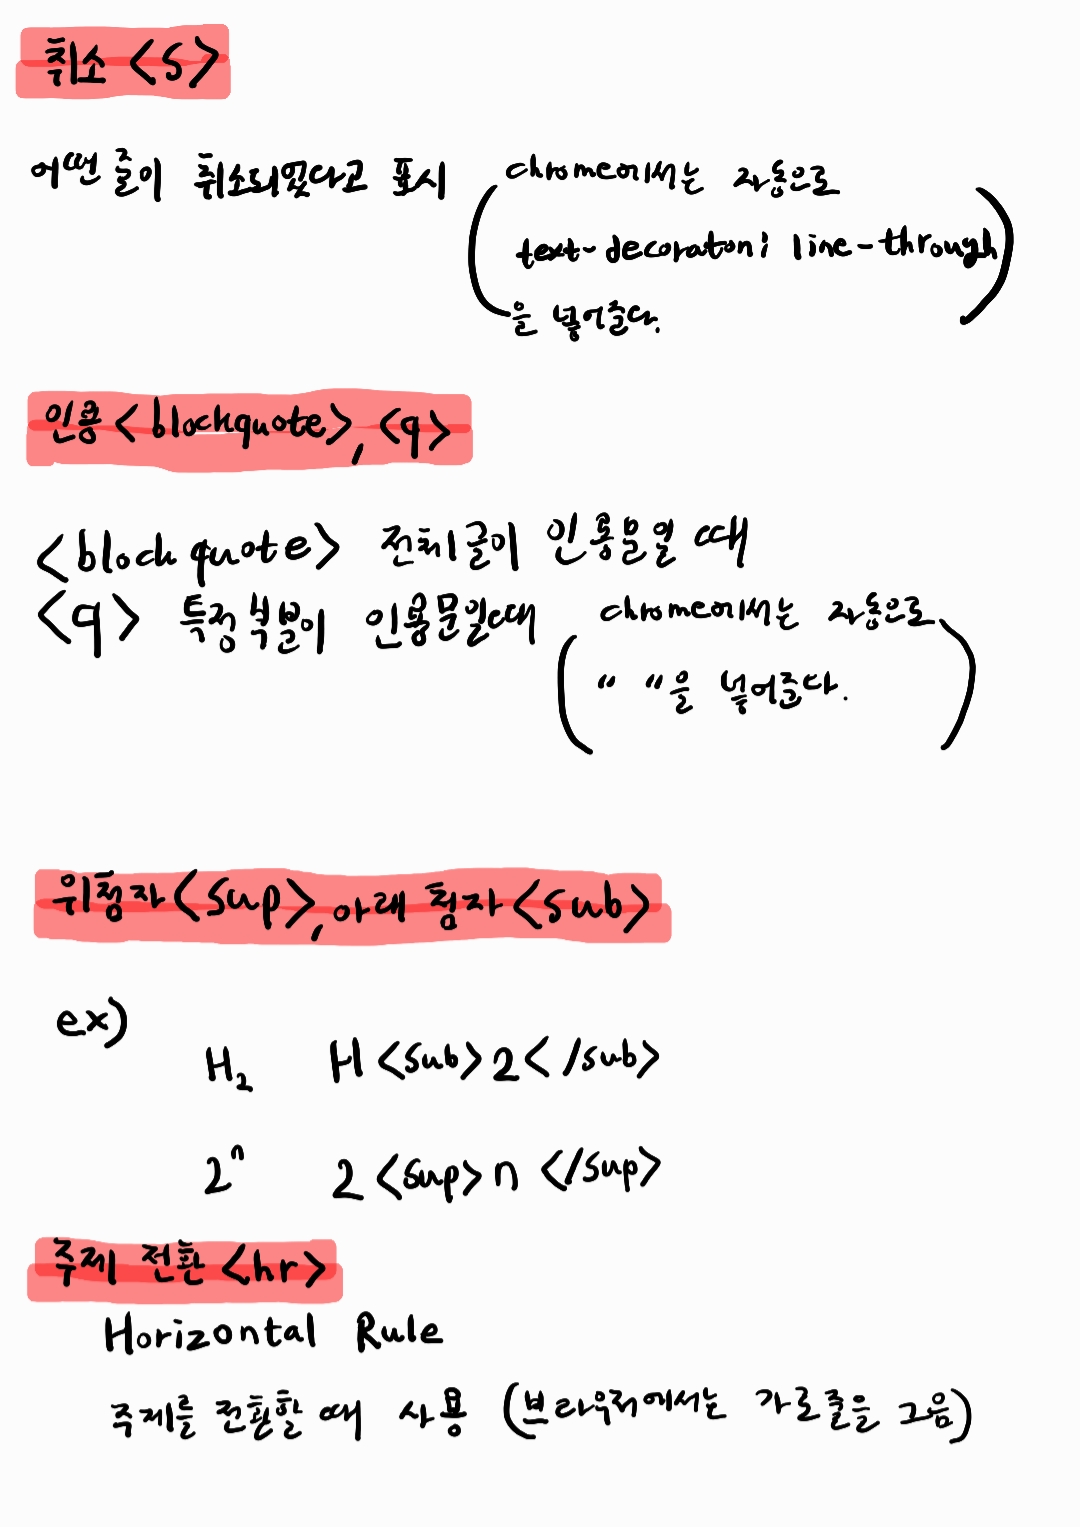 취소 <s>
어떤 줄이 취소되었다고 표시 (chrome에서는 자동으로
text-decoraton: line-through
을 넣어준다.)
인용 <blockquote>, <q>
<blockquote> 전체글이 인용문일 때
<q> 특정부분이 인용문일때 (chrome에서는 자동으로
“ ”을 넣어준다.)
위첨자 <sup>, 아래 첨자 <sub>
ex)
H₂ H <sub> 2 </sub>
2ⁿ 2 <sup> n </sup>
주제 전환 <hr>
Horizontal Rule
주제를 전환할 때 사용 (브라우저에서는 가로줄을 그음)